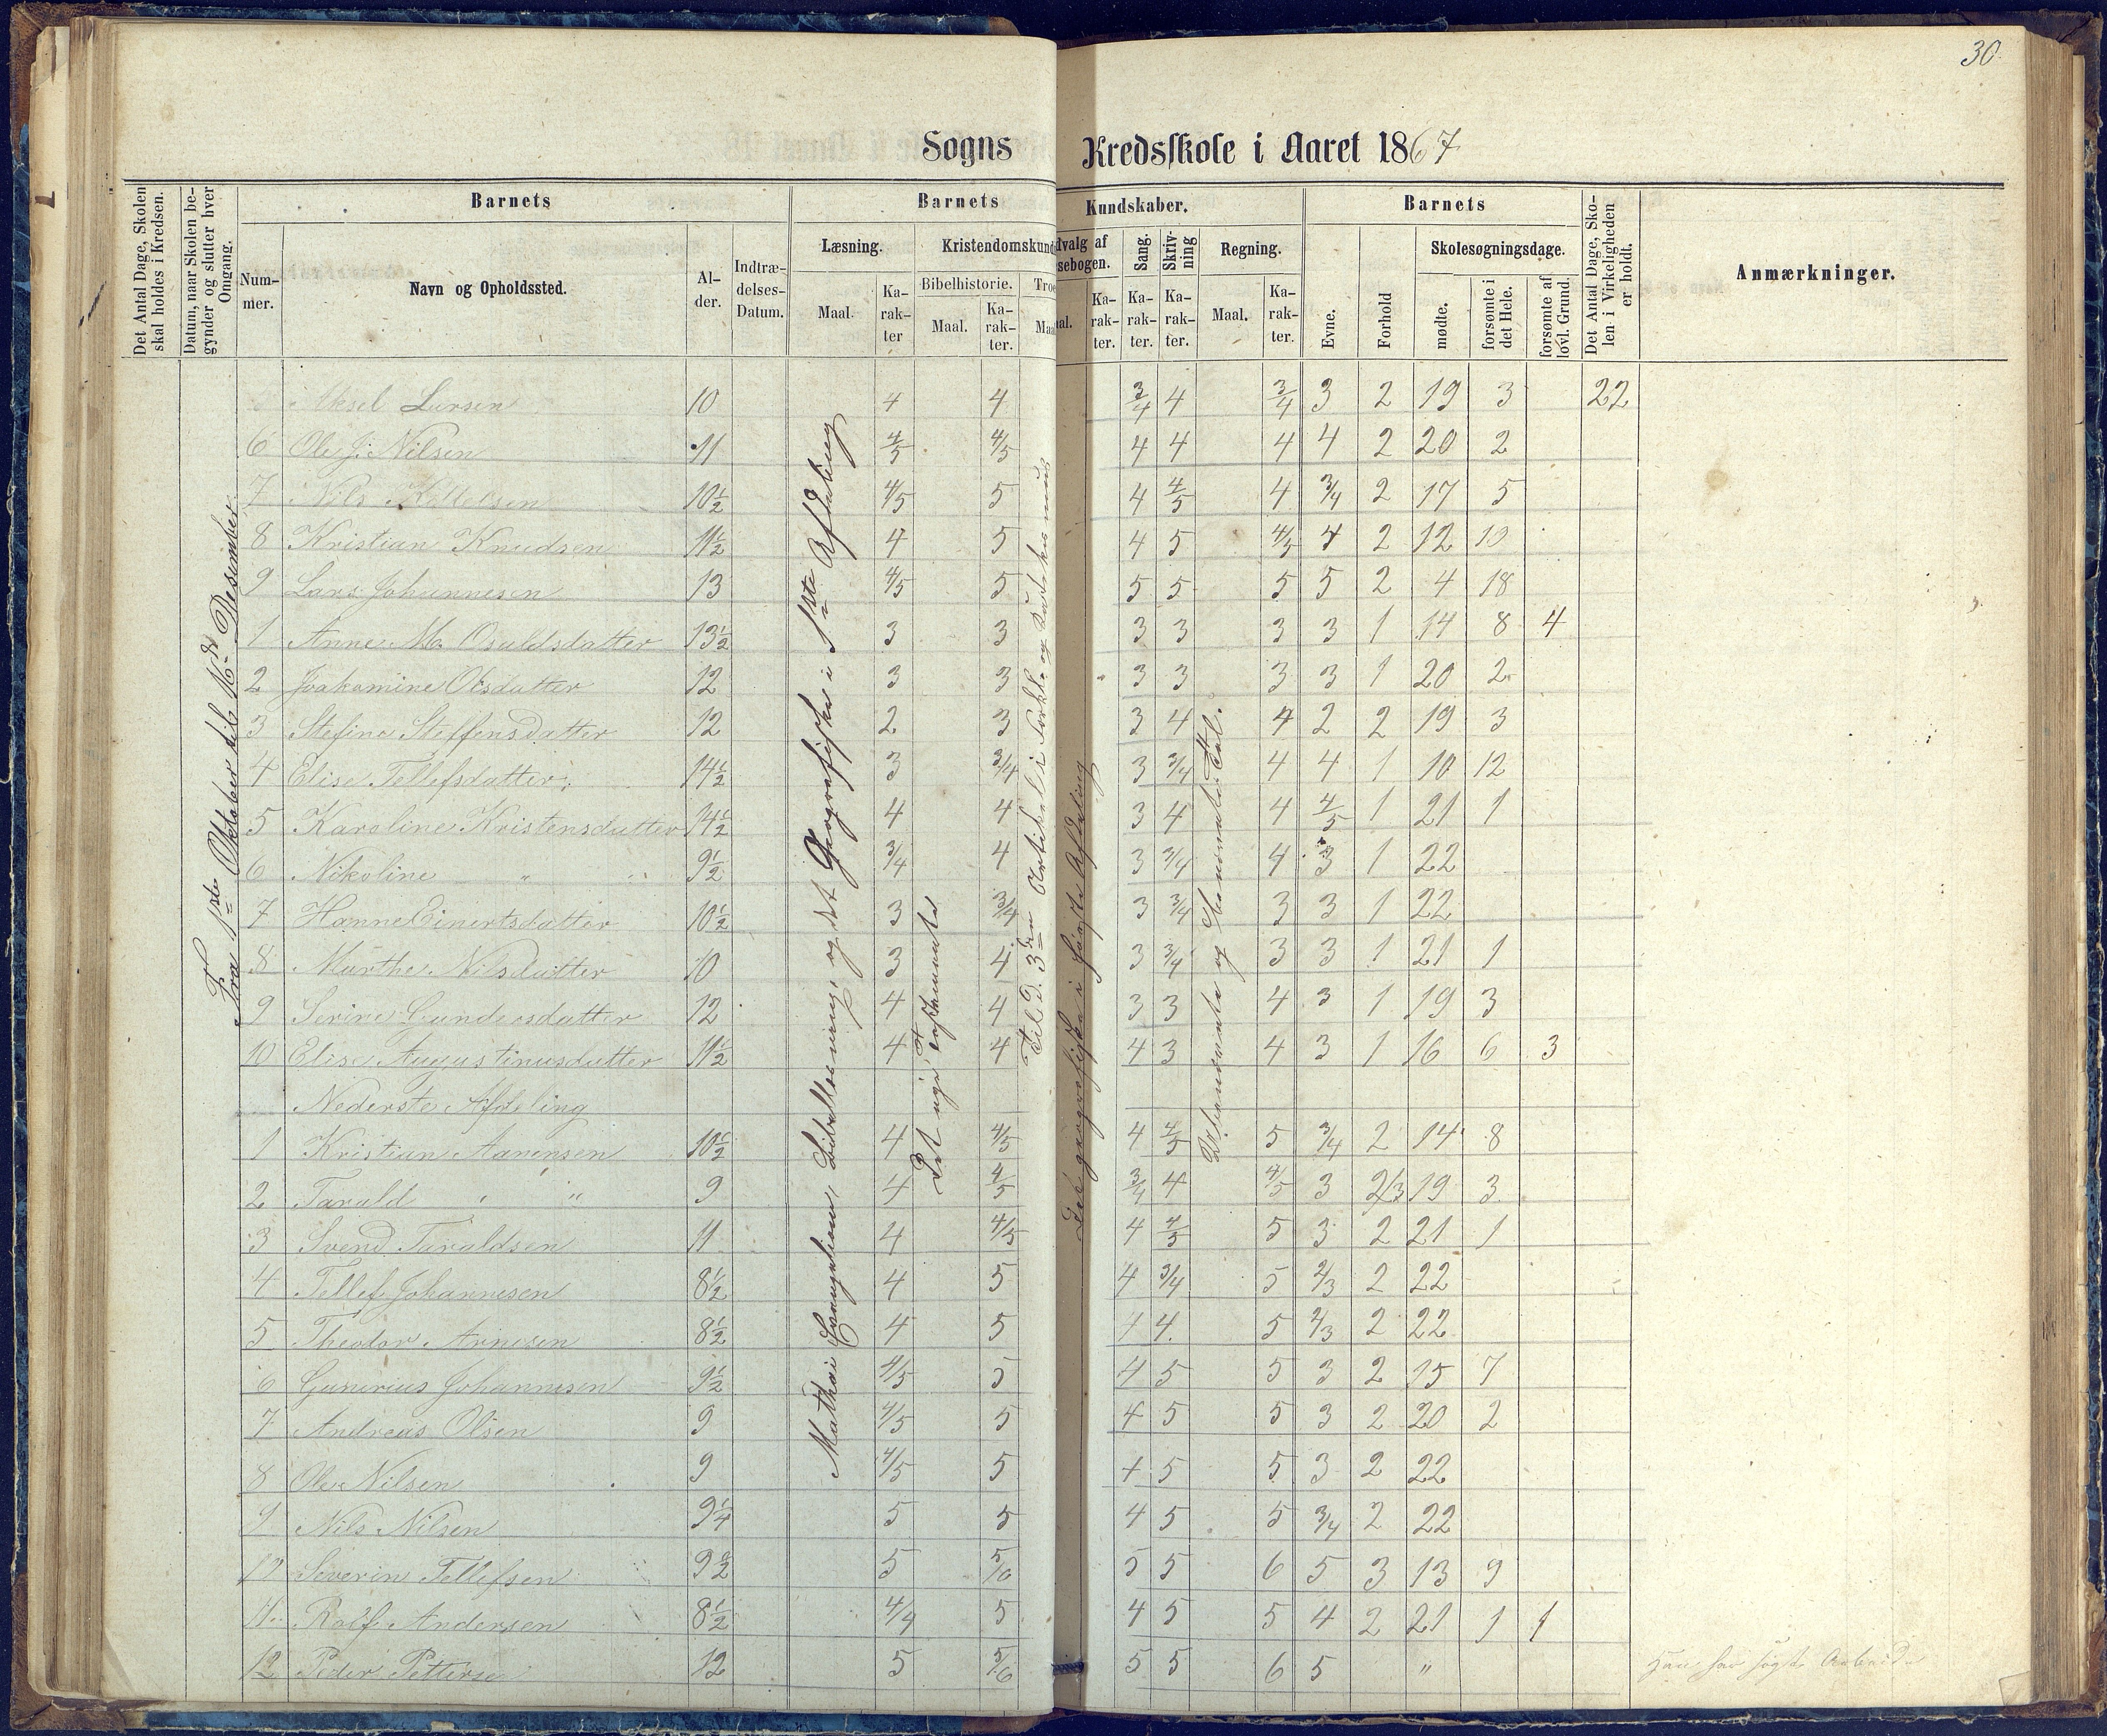 30
Sogns Kredsskole i Aaret 1867
Det Antal Dage, Skolen skal holdes i Kredsen.
Datum, naar Skolen begynder og slutter hver Omgang.
Barnets
Num-mer.
Navn og Opholdssted.
Al-der.
Indtræ-delses-Datum.
Barnets Kundskaber.
Læsning.
Maal.
Ka-rak-ter
Kristendomskund
Bibelhistorie.
Maal.
Ka-rak-ter.
Troe
Maa
dvalg af
sebogen.
al.
Ka-rak-ter.
Sang.
Ka-rak-ter.
Skriv-ning
Ka-rak-ter.
Regning.
Maal.
Ka-rak-ter.
Barnets
Evne.
Forhold
Skolesøgningsdage.
mødte.
forsømte i det Hele.
forsømte af lovl. Grund.
Det Antal Dage, Skolen i Virkeligheden er holdt.
Anmærkninger.
Fra 1ste Oktober til 16de Desember
Mathæi Evangelium, Bibellæsning, og det Geografiske i 1ste Afdeling
Det nye Testamente
Til D. 3den Artikel i Forkl. og Katekismus
Det geografiske i første Afdeling
Ubenævnte og benævnte Tal.
Aksel Larsen 10 4 4 3/4 4 3/4 3 2 19 3 22
6 Ole J. Nilsen 11 4/5 4/5 4 4 4 4 2 20 2
7 Nils Kittelsen 10½ 4/5 5 4 4/5 4 3/4 2 17 5
8 Kristian Knudsen 11½ 4 5 4 5 4/5 4 2 12 10
9 Lars Johannesen 13 4/5 5 5 5 5 5 2 4 18
1 Anne M. Osuldsdatter 13½ 3 3 3 3 3 3 1 14 8 4
2 Joakomine Olsdatter 12 3 3 3 3 3 3 1 20 2
3 Stefine Steffensdatter 12 2 3 3 4 4 2 2 19 3
4 Elise Tellefsdatter 14½ 3 3/4 3 3/4 4 4 1 10 12
5 Karoline Kristensdatter 14½ 4 4 3 4 4 4/5 1 21 1
6 Nikoline " 9½ 3/4 4 3 3/4 4 3 1 22
7 Hanne Einertsdatter 10½ 3 3/4 3 3/4 3 3 1 22
8 Marthe Nilsdatter 10 3 4 3 3/4 3 3 1 21 1
9 Serine Gundersdatter 12 4 4 3 3 4 3 1 19 3
10 Elise Augustinusdatter 11½ 4 4 4 3 4 3 1 16 6 3
Nederste Afdeling
1 Kristian Aanensen 10½ 4 4/5 4 4/5 5 3/4 2 14 8
2 Tarald " 9 4 4/5 3/4 4 4/5 3 2/3 19 3
3 Svend Taraldsen 11 4 4/5 4 4/5 5 3 2 21 1
4 Tellef Johannesen 8½ 4 5 4 3/4 5 2/3 2 22
5 Theodor Arnesen 8½ 4 5 4 4 5 2/3 2 22
6 Gunerius Johannesen 9½ 4/5 5 4 5 5 3 2 15 7
7 Andreas Olsen 9 4/5 5 4 5 5 3 2 20 2
8 Ole Nilsen 9 4/5 5 4 5 5 3 2 22
9 Nils Nilsen 9¼ 5 5 4 5 5 3/4 2 22
10 Severin Tellefsen 9½ 5 5/6 5 5 6 5 3 13 9
11 Rolf Andersen 8½ 4/4 5 4 5 5 4 2 21 1 1
12 Peder Petterse 12 5 5/6 5 5 6 5 "
Han har søgt